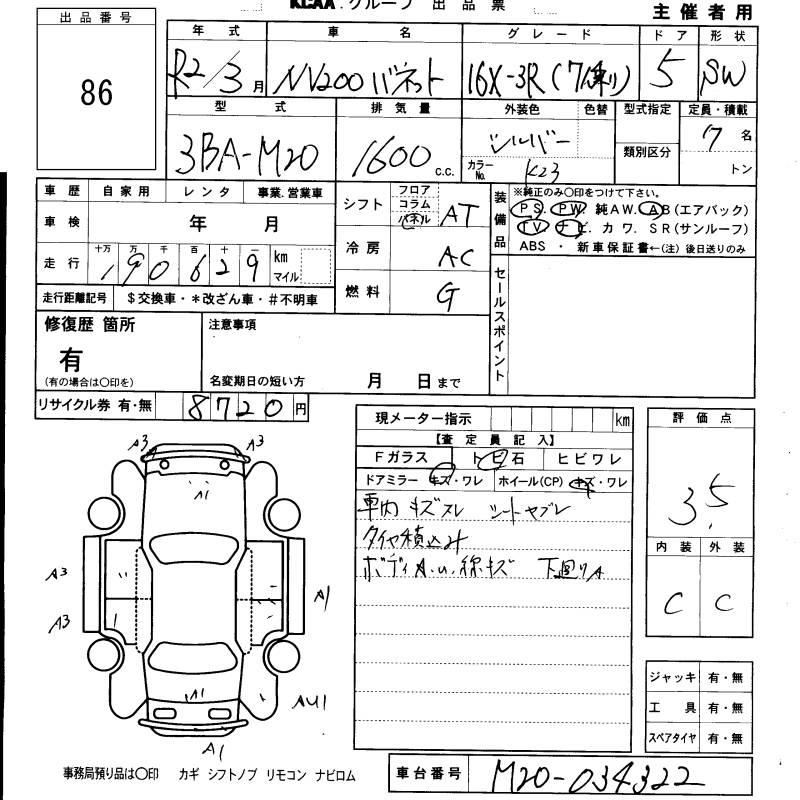 KCAA.グループ 出品票
主催者用
出品番号
86
年式 車名 グレード ドア 形状
R2/3月 NV200バネット 16X-3R(7人乗り) 5 SW
型式 排気量 外装色 色替 型式指定 定員・積載
3BA-M20 1600 c.c. シルバー 類別区分 7名
カラーNo. K23 トン
車歴 自家用 レンタ 事業.営業車
シフト フロア コラム パネル AT
装備品 ※純正のみ〇印をつけて下さい。
PS. PW. 純AW. AB(エアバック)
TV ナビ. カワ. SR(サンルーフ)
ABS ・ 新車保証書←(注)後日送りのみ
車検 年 月
冷房 AC
走行 十万 万 千 百 十 一 km マイル
190629
セールスポイント
燃料 G
走行距離記号 $交換車・*改ざん車・#不明車
修復歴 箇所
有
(有の場合は〇印を)
注意事項
名変期日の短い方 月 日まで
リサイクル券 有・無 8720円
現メーター指示 km
【査定員記入】
Fガラス トビ石 ヒビワレ
ドアミラー キズ・ワレ ホイール(CP) キズ・ワレ
車内キズスレ シートヤブレ
タイヤ積込み
ボディA.u.線キズ 下廻りA
評価点
3.5
内装 外装
C C
A3 A3
A1
A3
A3
A1
A1
AU1
A1
ジャッキ 有・無
工具 有・無
スペアタイヤ 有・無
事務局預り品は〇印 カギ シフトノブ リモコン ナビロム
車台番号 M20-034322